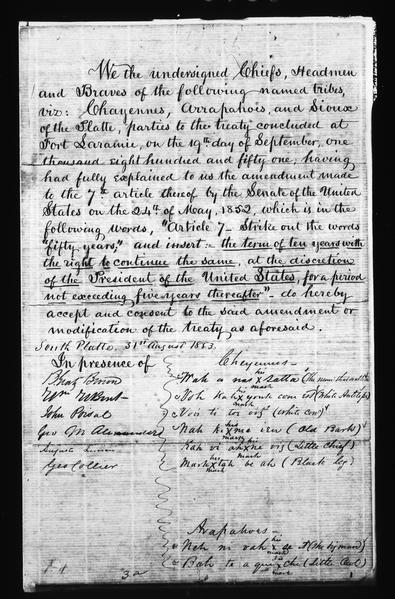 We the undersigned Chiefs, Headmen
and Braves of the following named tribes,
viz: Chayennes, Arrapahois, and Sioux
of the Platte, parties to the treaty concluded at
Fort Laramie, on the 17th day of September, one
thousand eight hundred and fifty one, having
had fully explained to us the amendment made
to the 7th article thereof by the Senate of the United
States on the 24th of May, 1852, which is in the
following words, "Article 7 – Strike out the words
"fifty years," and insert: the term of ten years with
the right to continue the same, at the discretion
of the President of the United States, for a period
not exceeding five years thereafter" – do hereby
accept and consent to the said amendment or
modification of the treaty as aforesaid.
South Platte, 31st August 1853.
In presence of
Cheyennes –
his
Wah a nas x satta
mark
his
Voh kah x
mark
John
Vois to toe vis (White Cow)
Geo M Alexander
Nah ki x (Old Bark)
his
mark
his
Kah vi ah x ne vis (Little Chief)
mark
Geo Collier
his
Mark x tah be ah (Black Leg)
mark
Arapahoes –
his
Neh ni vah x
mark
his
Bah to a x che (Little Owl)
mark